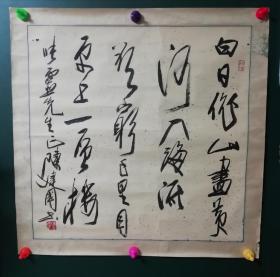 白日依山盡黃
河入海流
欲窮千里目
更上一層樓
先生正陳